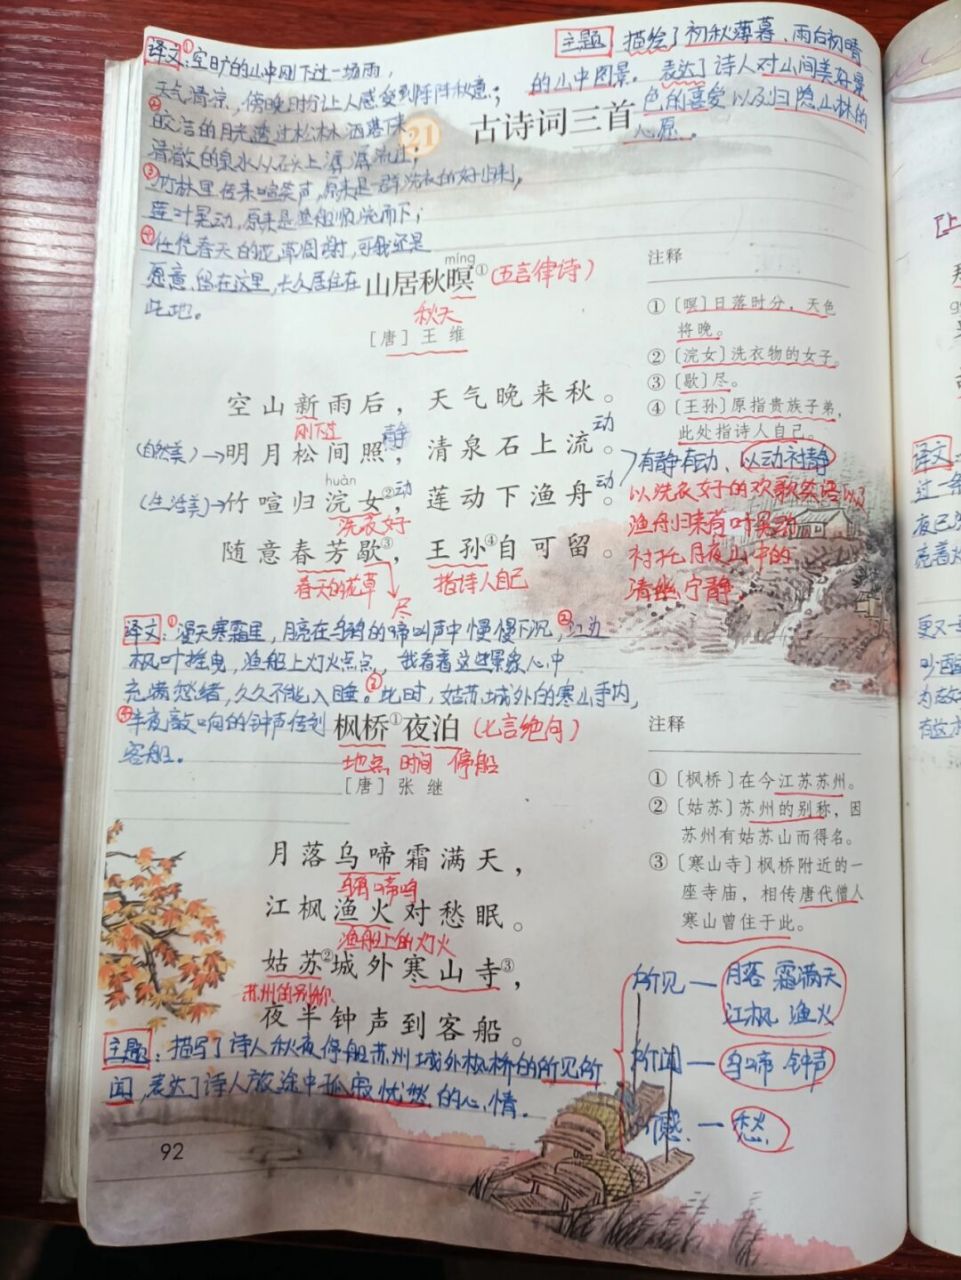 译文:①空旷的山中刚下过一场雨,
天气清凉,傍晚时分让人感受到阵阵秋意;
②皎洁的月光透过松林洒落下来,
清澈的泉水从石头上潺潺流过;
③竹林里传来喧笑声,原来是一群洗衣的好归来,
莲叶晃动,原来是渔船顺流而下;
④任凭春天的花草凋谢,可我还是
愿意留在这里,长久居住在
此地。
主题 描绘了初秋薄暮,雨后初晴
的山中图景。表达了诗人对山间美好景
色的喜爱以及归隐山林的
心愿。
21 古诗词三首
míng
山居秋暝①(五言律诗)
秋天
[唐] 王 维
空山新雨后,天气晚来秋。
刚下过 静 动
(自然美)→明月松间照,清泉石上流。
huàn
(生活美)→竹喧归浣女②动,莲动下渔舟。动
洗衣好
随意春芳歇③,王孙④自可留。
春天的花草 尽 指诗人自己
有静有动、以动衬静
以洗衣好的欢歌笑语以及
渔舟归来荷叶晃动
衬托月夜山中的
清幽、宁静。
注释
① 〔暝〕日落时分,天色
将晚。
② 〔浣女〕洗衣物的女子。
③ 〔歇〕尽。
④ 〔王孙〕原指贵族子弟,
此处指诗人自己。
译文:①漫天寒霜里,月亮在乌鸦的啼叫声中慢慢下沉,②江边
枫叶摇曳,渔船上灯火点点,我看着这些景象心中
充满愁绪,久久不能入睡。③此时,姑苏城外的寒山寺内,
④半夜敲响的钟声传到
客船。
枫桥①夜泊(七言绝句)
地点 时间 停船
[唐] 张 继
月落乌啼霜满天,
乌鸦啼鸣
江枫渔火对愁眠。
渔船上的灯火
姑苏②城外寒山寺③,
苏州的别称
夜半钟声到客船。
注释
① 〔枫桥〕在今江苏苏州。
② 〔姑苏〕苏州的别称,因
苏州有姑苏山而得名。
③ 〔寒山寺〕枫桥附近的一
座寺庙,相传唐代僧人
寒山曾住于此。
主题:描写了诗人秋夜停船苏州城外枫桥的所见所
闻,表达了诗人旅途中孤寂忧愁的心情。
所见—月落 霜满天
江枫 渔火
所闻—乌啼 钟声
所感—愁
92
译文
过一条